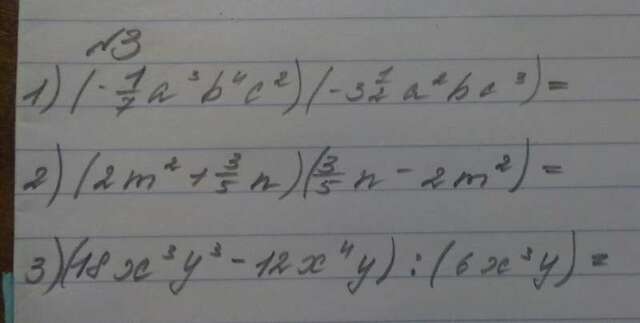 №3
1) (-1/7 a³b⁴c²)(-3 1/2 a²bc³)=
2) (2m² + 3/5 n)(3/5 n - 2m²)=
3) (18x³y³ - 12x⁴y) : (6x³y)=